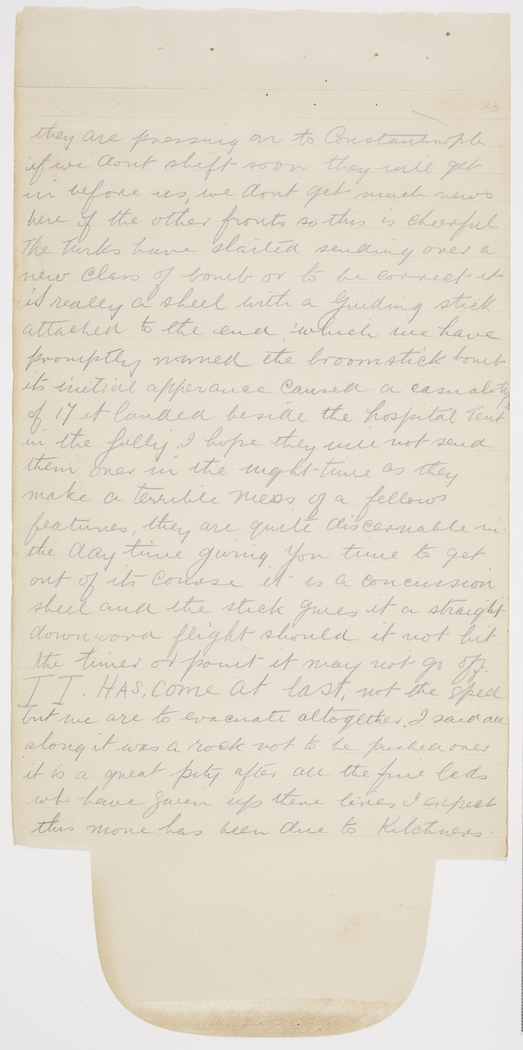 23
they are pressing on to Constantinople
if we dont shift soon they will get
in before us, we dont get much news
here of the other fronts so this is cheerful
the turks have started sending over a
new class of bomb or to be correct it
is really a sheel with a guiding stick
attached to the end, which we have
promptly named the broomstick bomb
its initial apperance caused a casualty
of 17 it landed beside the hospital tent
in the gully, I hope they will not send
them over in the night time as they
make a terrible mess of a fellows
features, they are quite discernable in
the day time giving you time to get
out of its course it is a concussion
sheel and the stick gives it a straight
downword flight should it not hit
the timer or point it may not go off.
IT. HAS, come at last, not the speel
but we are to evacuate altogether, I said all
along it was a rock not to be pushed over
it is a great pity after all the fine lads
who have given up there lives I expect
this move has been due to Kitchners